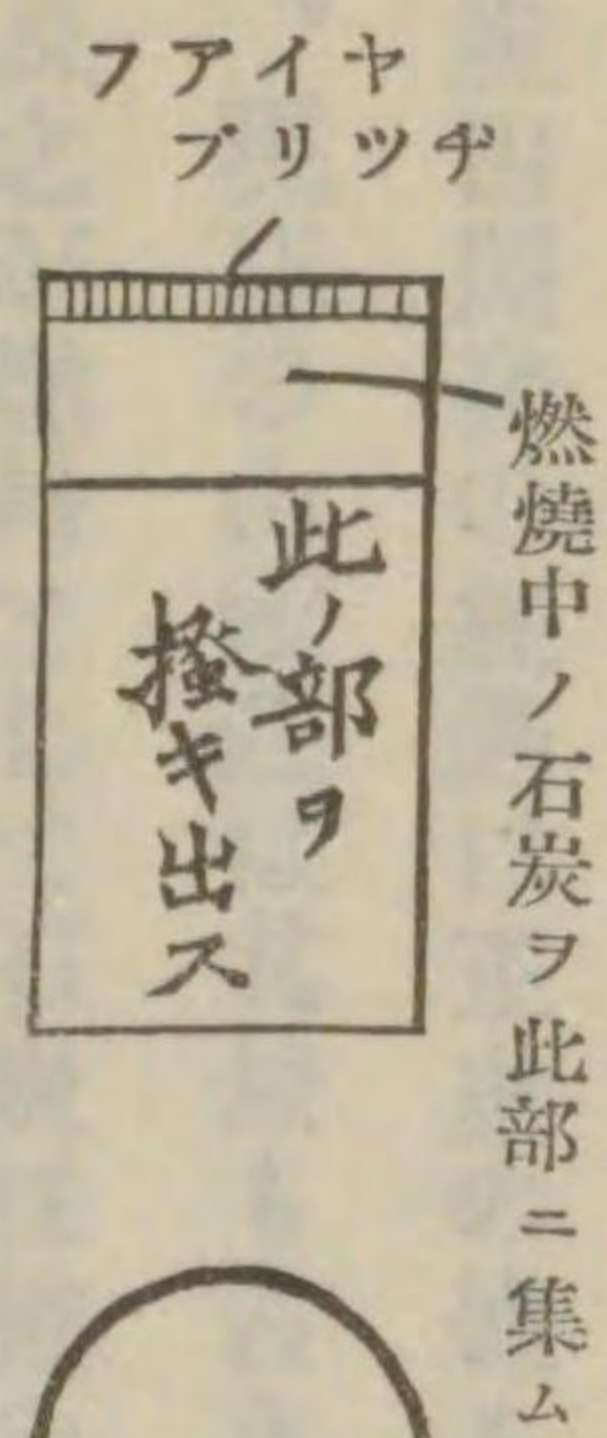 フアイヤ
ブリツヂ
燃燒中ノ石炭ヲ此部ニ集ム
此ノ部ヲ
掻キ出ス